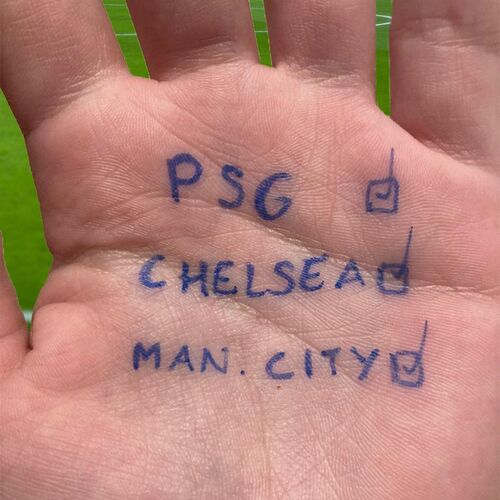 PSG
CHELSEA
MAN. CITY